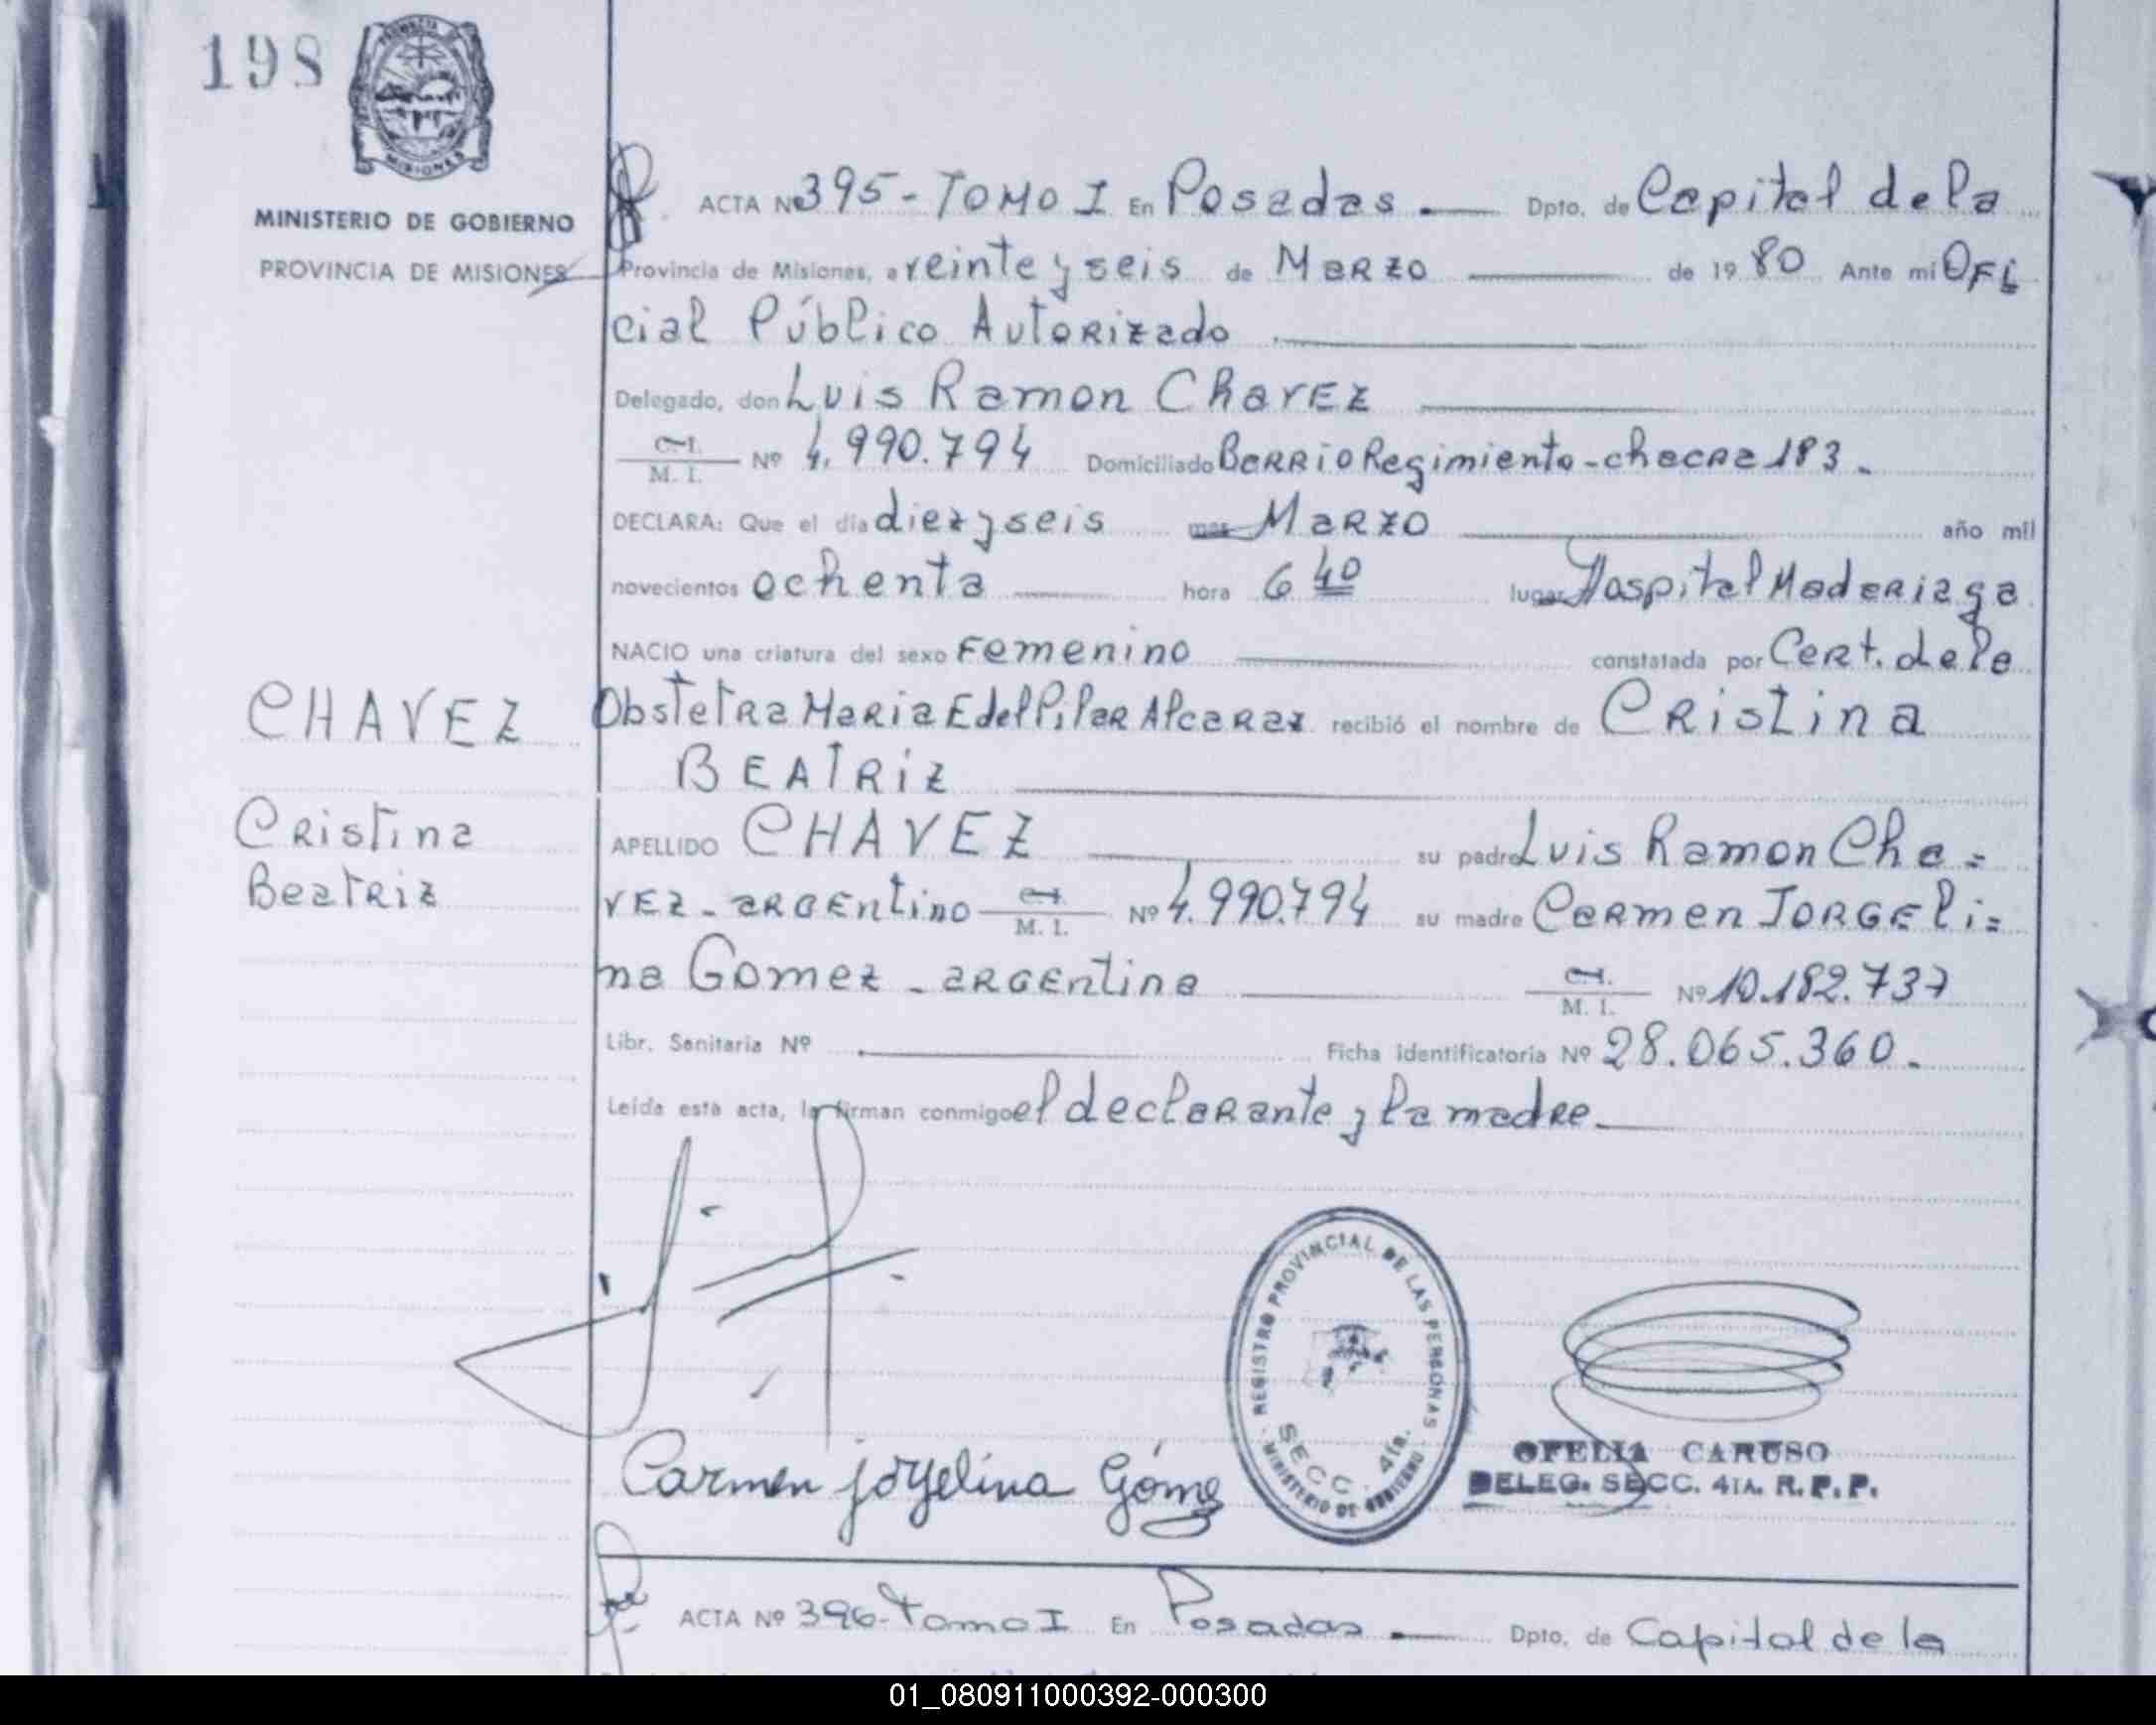 198
PROVINCIA DE
MISIONES
MINISTERIO DE GOBIERNO
PROVINCIA DE MISIONES
ACTA Nº 395-TOMO I En Posadas. Dpto. de Capital de la
Provincia de Misiones, a veinte y seis de Marzo de 1980 Ante mi Ofi
cial Público Autorizado
Delegado, don Luis Ramon Chavez
C. I.
M. I. Nº 4.990.794 Domiciliado Barrio Regimiento-chacra 183.
DECLARA: Que el día diez y seis mes Marzo año mil
novecientos ochenta hora 6 40 lugar Hospital Madariaga
NACIO una criatura del sexo Femenino constatada por Cert. de la
CHAVEZ
Obstetra Maria E del Pilar Alcaraz recibió el nombre de Cristina
BEATRiz
Cristina
Beatriz
APELLIDO CHAVEZ su padre Luis Ramon Cha=
vez-argentino C. I. M. I. Nº 4.990.794 su madre Carmen Jorgeli=
na Gomez-argentina C. I. M. I. Nº 10.182.737
Libr. Sanitaria Nº Ficha identificatoria Nº 28.065.360.
Leída esta acta, la firman conmigo el declarante y la madre.
REGISTRO PROVINCIAL DE LAS PERSONAS
SECC. 4ta.
MINISTERIO DE GOBIERNO
OFELIA CARUSO
DELEG. SECC. 4TA. R.P.P.
Carmen jorgelina Gómez
ACTA Nº 396-Tomo I En Posadas. Dpto. de Capital de la
01_080911000392-000300